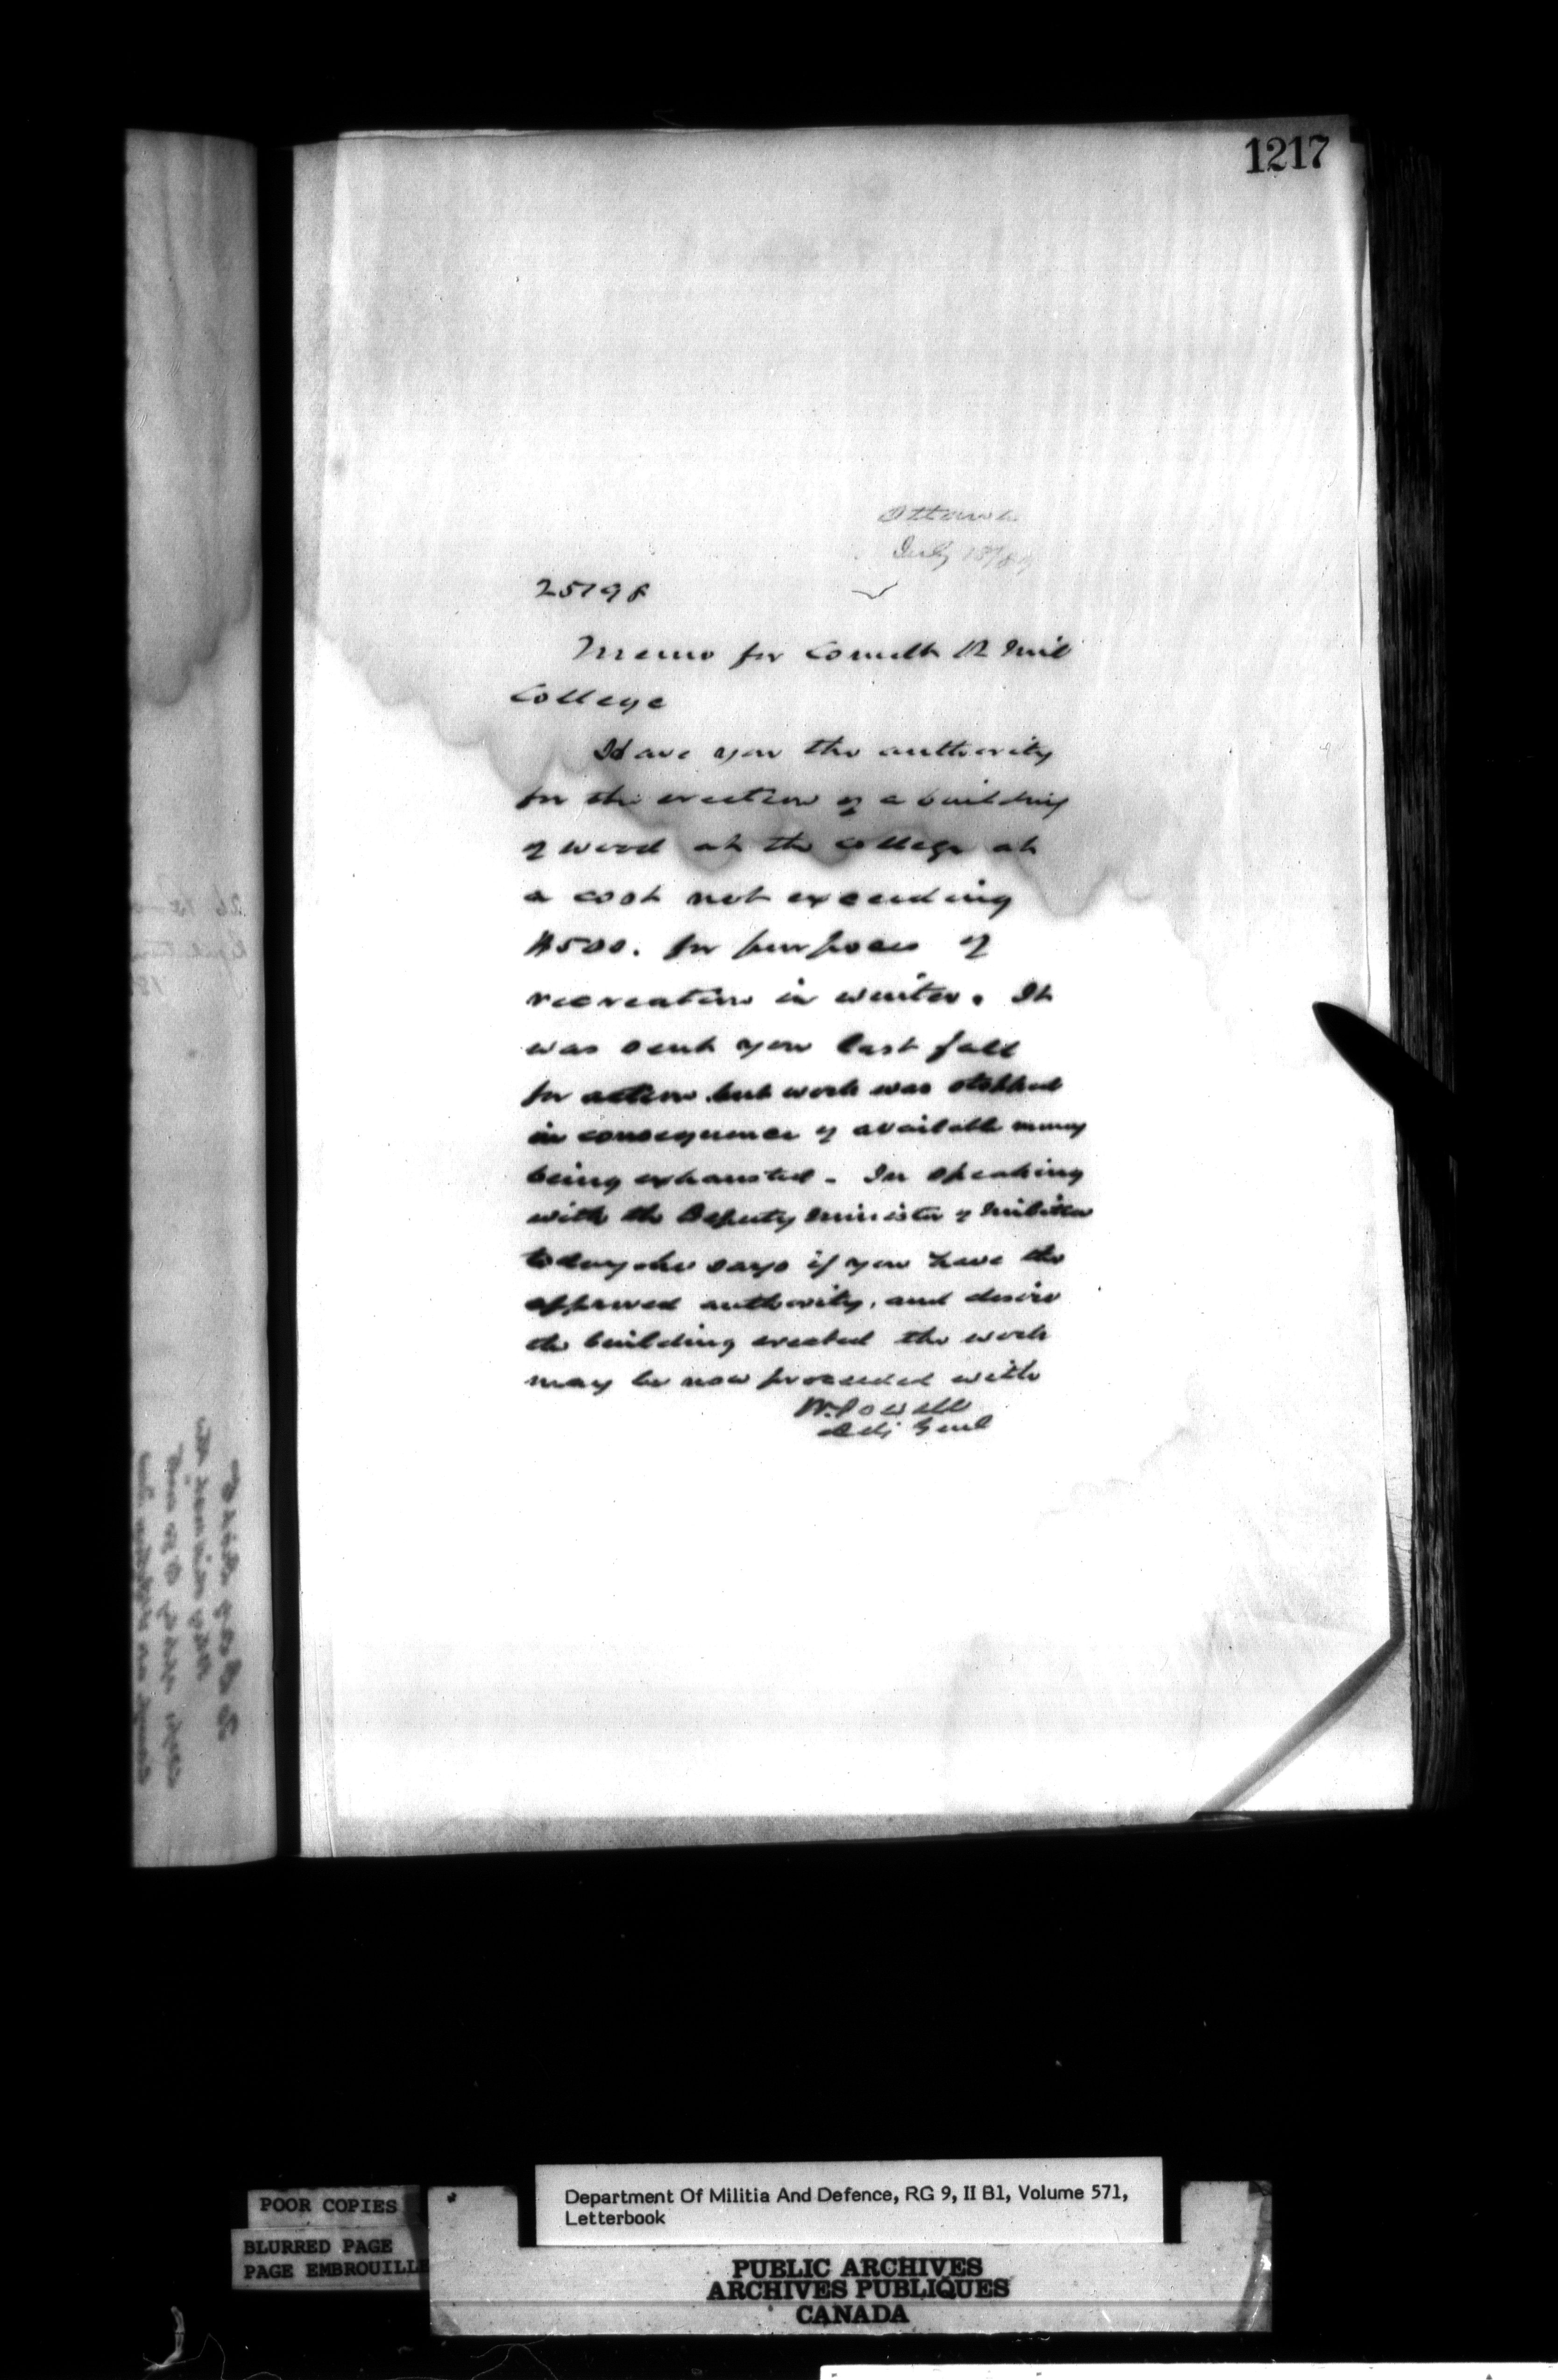 1217
Ottawa
July 18/89
25798
Memo for Comdt R Mil
College
Have you the authority
for the erection of a building
of wood at the college at
a cost not exceeding
$500. for purposes of
recreation in winter. It
was sent you last fall
for action but work was stopped
in consequence of available money
being exhausted - In speaking
with the Deputy Minister of Militia
today he says if you have the
approved authority, and desire
the building erected the work
may be now proceeded with
W. Powell
Adj Genl
POOR COPIES
BLURRED PAGE
PAGE EMBROUILLE
Department Of Militia And Defence, RG 9, II B1, Volume 571,
Letterbook
PUBLIC ARCHIVES
ARCHIVES PUBLIQUES
CANADA